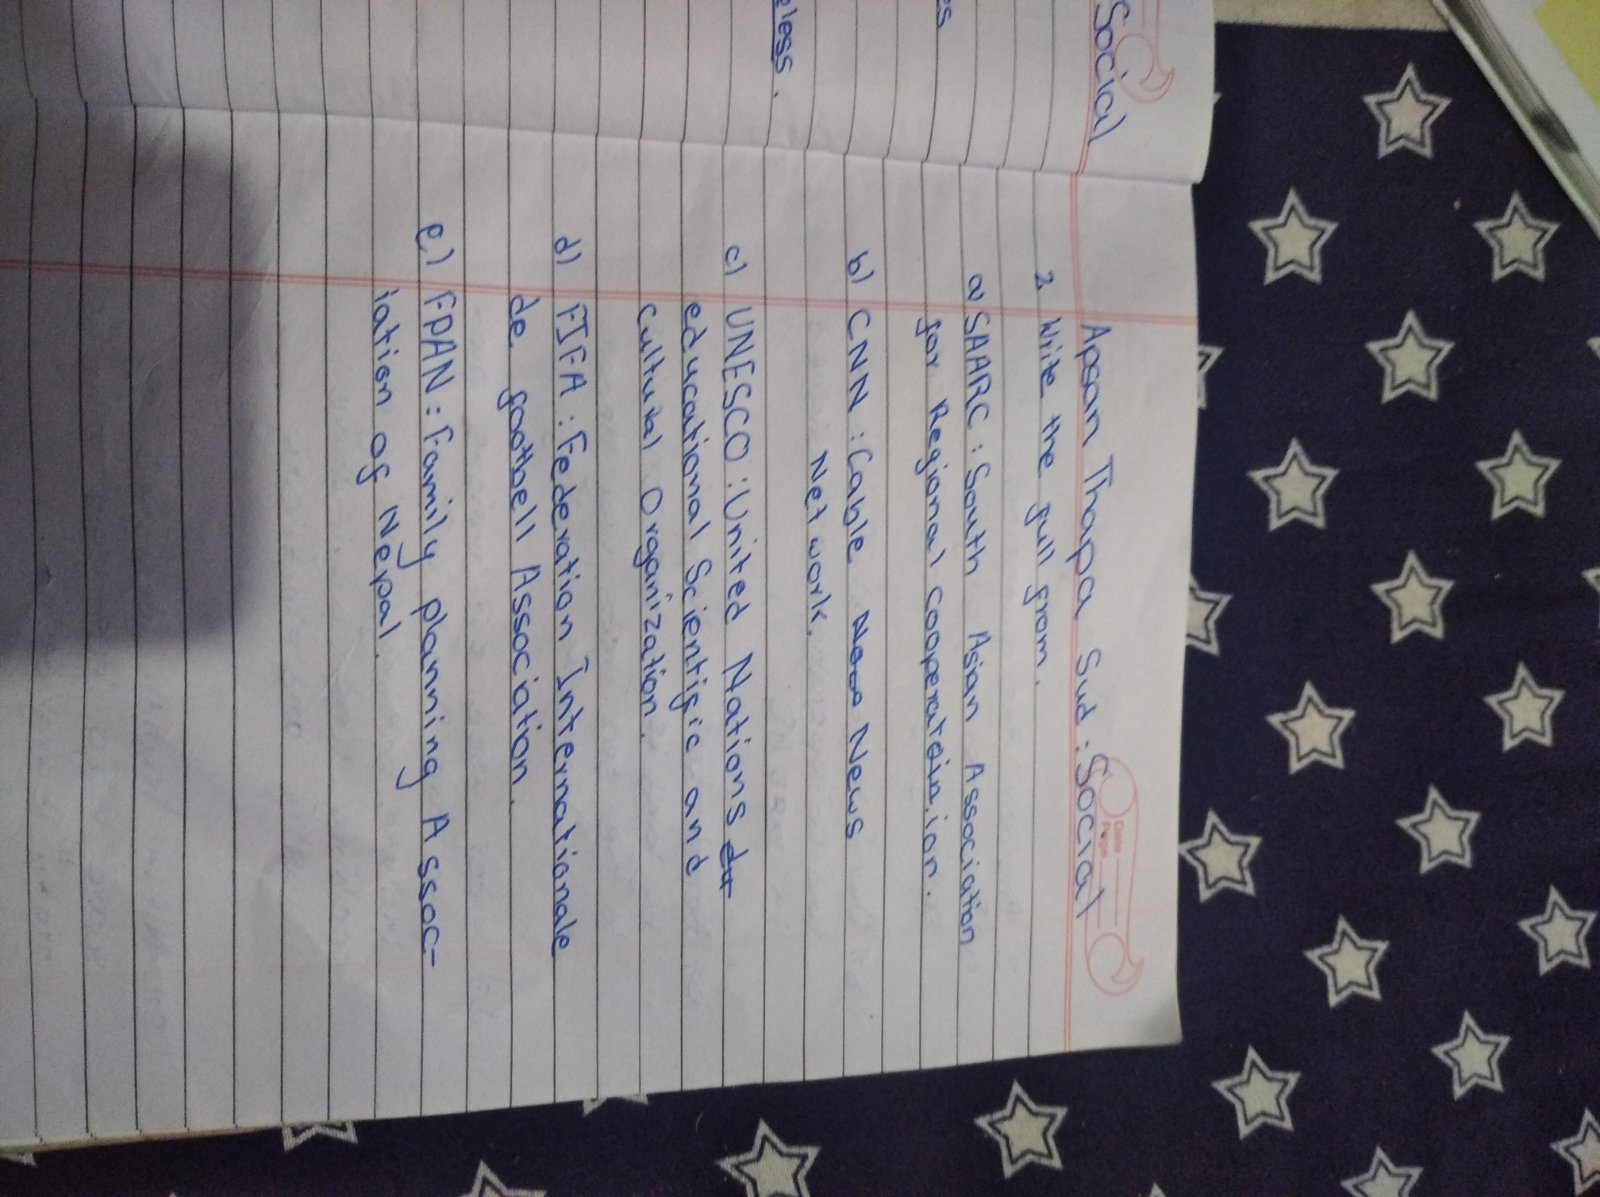 Social
es
eless.
Apsan Thapa Sud: Social
Date
Page
2. Write the full from.
a) SAARC : South Asian Association
for Regional cooperatoin.ion.
b) CNN : Cable News
Network.
c) UNESCO : United Nations
educational Scientific and
Cultural Organization.
d) FIFA : Federation Internationale
de footbell Association.
e) FPAN : Family planning Assoc-
iation of Nepal.